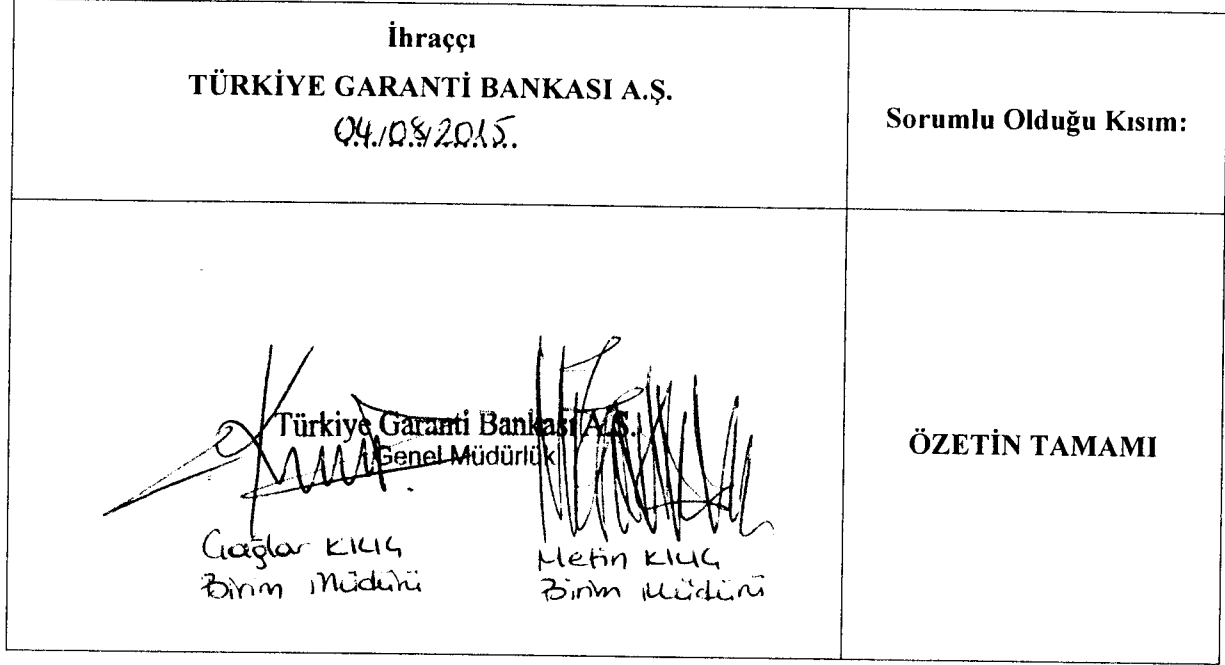 İhraççı
TÜRKİYE GARANTİ BANKASI A.Ş.
04/08/2015.
Sorumlu Olduğu Kısım:
Türkiye Garanti Bankası A.Ş.
Genel Müdürlük
Çağlar KILIÇ
Birim Müdürü
Metin KILIÇ
Birim Müdürü
ÖZETİN TAMAMI